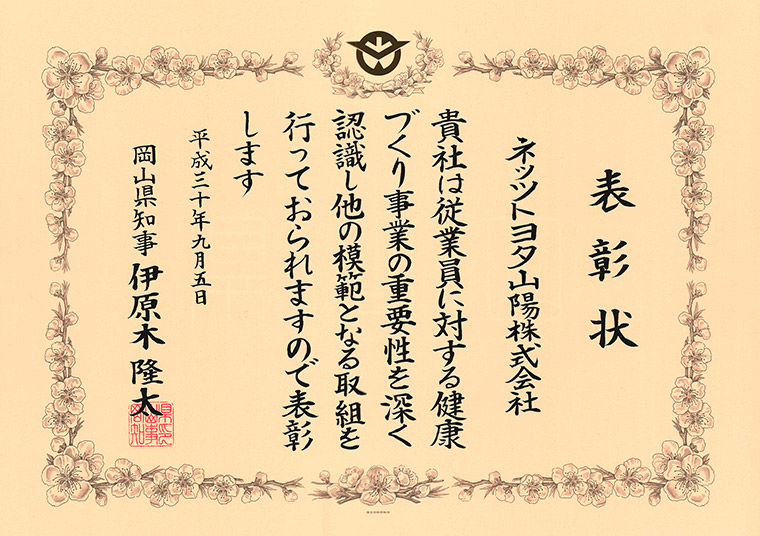 表彰状
ネッツトヨタ山陽株式会社
貴社は従業員に対する健康
づくり事業の重要性を深く
認識し他の模範となる取組を
行っておられますので表彰
します
平成三十年九月五日
岡山県知事 伊原木隆太